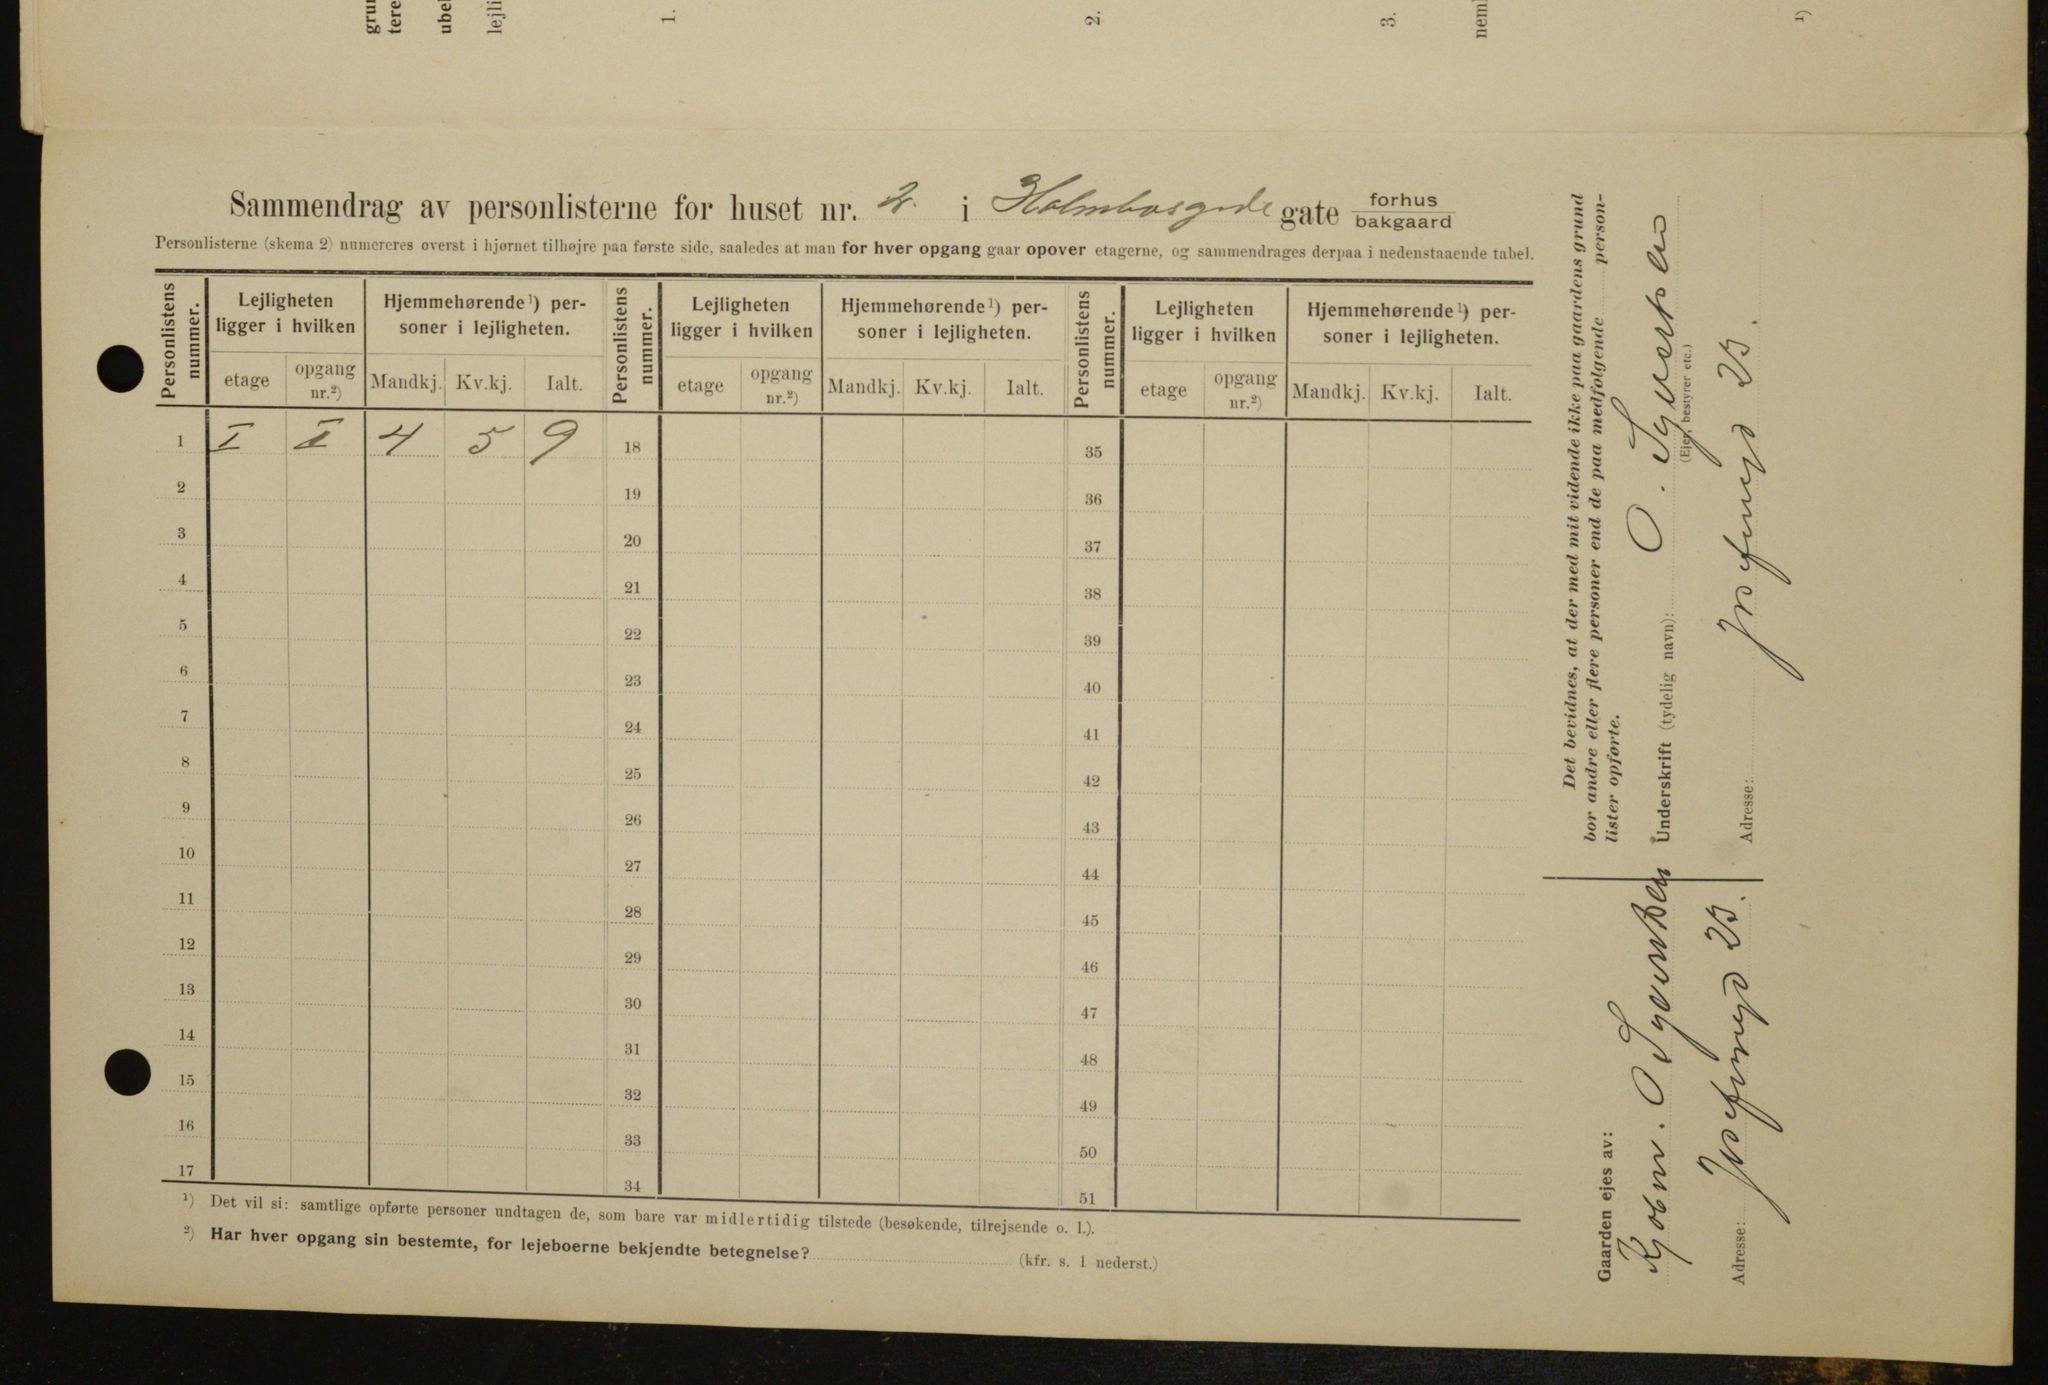 grun
tere
ube
lejli
1.
2.
3.
neml
1)
Sammendrag av personlisterne for huset nr. 2. i Holmbosgade gate forhus bakgaard
Personlisterne (skema 2) numereres øverst i hjørnet tilhøjre paa første side, saaledes at man for hver opgang gaar opover etagerne, og sammendrages derpaa i nedenstaaende tabel.
Personlistens nummer. Lejligheten ligger i hvilken Hjemmehørende 1) personer i lejligheten. Personlistens nummer. Lejligheten ligger i hvilken Hjemmehørende 1) personer i lejligheten. Personlistens nummer. Lejligheten ligger i hvilken Hjemmehørende 1) personer i lejligheten.
etage opgang nr.2) Mandkj. Kv.kj. Ialt. etage opgang nr.2) Mandkj. Kv.kj. Ialt. etage opgang nr.2) Mandkj. Kv.kj. Ialt.
1 I I 4 5 9 18 35
2 19 36
3 20 37
4 21 38
5 22 39
6 23 40
7 24 41
8 25 42
9 26 43
10 27 44
11 28 45
12 29 46
13 30 47
14 31 48
15 32 49
16 33 50
17 34 51
1) Det vil si: samtlige opførte personer undtagen de, som bare var midlertidig tilstede (besøkende, tilrejsende o. l.).
2) Har hver opgang sin bestemte, for lejeboerne bekjendte betegnelse? (kfr. s. 1 nederst.)
Det bevidnes, at der med mit vidende ikke paa gaardens grund
bor andre eller flere personer end de paa medfølgende person-
lister opførte.
Underskrift (tydelig navn): O. Syvertsen
(Ejer, bestyrer etc.)
Adresse: Josefinegd 23.
Gaarden ejes av:
Kjøbm. O Syvertsen
Adresse: Josefinegd 23.